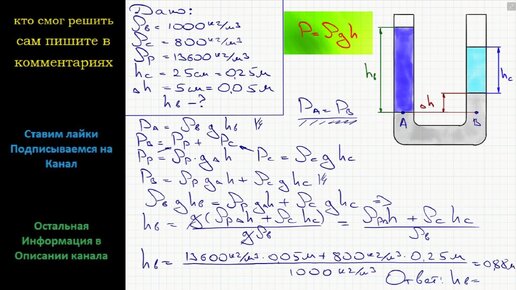 кто смог решить
сам пишите в
комментариях
Ставим лайки
Подписываемся на
Канал
Остальная
Информация в
Описании канала
Дано:
ρв = 1000 кг/м3
ρс = 800 кг/м3
ρр = 13600 кг/м3
hс = 25см = 0,25м
Δh = 5см = 0,05м
hв - ?
P = ρgh
PA = PB
hв
Δh
hс
A
B
PA = ρв g hв
PB = Pр + Pс
Pр = ρр g Δh Pс = ρс g hс
PB = ρр g Δh + ρс g hс
ρв g hв = ρр g Δh + ρс g hс =>
hв = g(ρр Δh + ρс hс) / gρв = ρр Δh + ρс hс / ρв
hв = 13600 кг/м3 · 0,05м + 800 кг/м3 · 0,25м / 1000 кг/м3 = 0,88м
Ответ: hв =